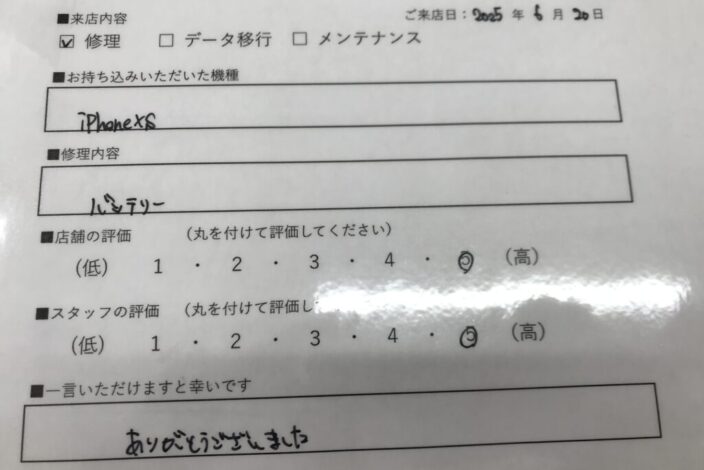 ■来店内容 ご来店日：2025 年 6 月 20 日
☑ 修理 □ データ移行 □ メンテナンス
■お持ち込みいただいた機種
iPhoneXS
■修理内容
バッテリー
■店舗の評価 （丸を付けて評価してください）
（低） 1 ・ 2 ・ 3 ・ 4 ・ 5 （高）
■スタッフの評価 （丸を付けて評価し
（低） 1 ・ 2 ・ 3 ・ 4 ・ 5 （高）
■一言いただけますと幸いです
ありがとうございました